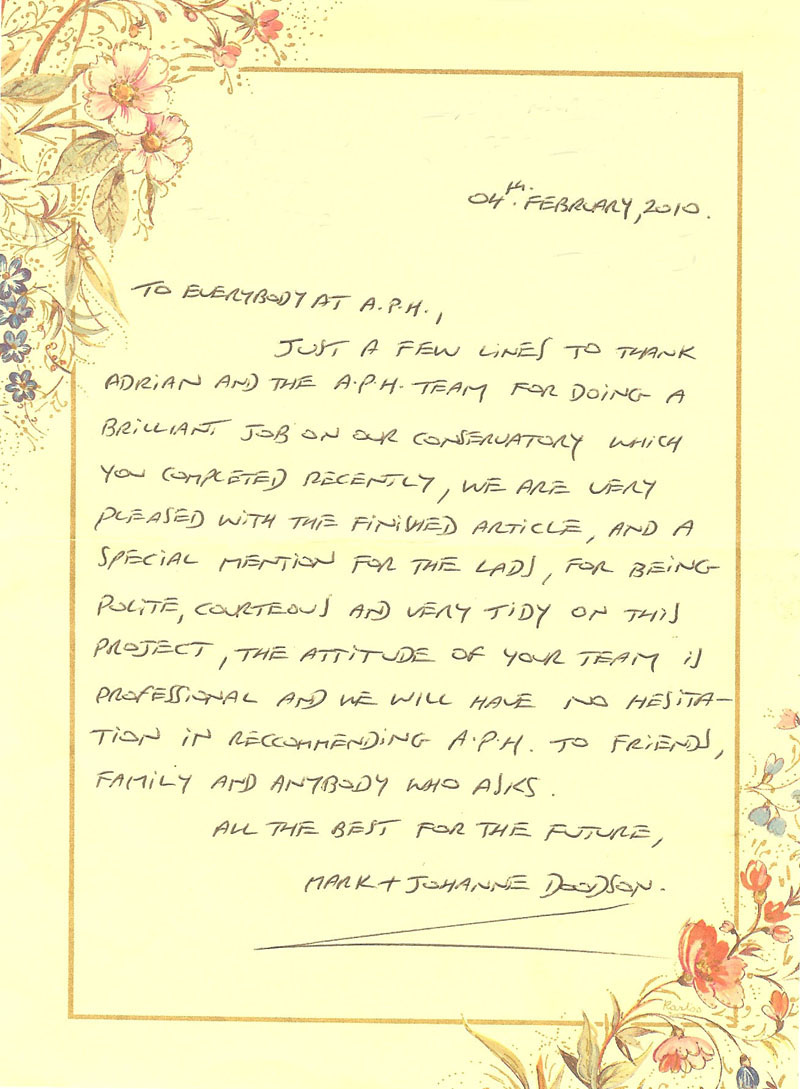 04th. FEBRUARY, 2010.
TO EVERYBODY AT A.P.H.,
JUST A FEW LINES TO THANK
ADRIAN AND THE A.P.H. TEAM FOR DOING A
BRILLIANT JOB ON OUR CONSERVATORY WHICH
YOU COMPLETED RECENTLY, WE ARE VERY
PLEASED WITH THE FINISHED ARTICLE, AND A
SPECIAL MENTION FOR THE LADS, FOR BEING
POLITE, COURTEOUS AND VERY TIDY ON THIS
PROJECT, THE ATTITUDE OF YOUR TEAM IS
PROFESSIONAL AND WE WILL HAVE NO HESITA-
TION IN RECCOMMENDING A.P.H. TO FRIENDS,
FAMILY AND ANYBODY WHO ASKS.
ALL THE BEST FOR THE FUTURE,
MARK + JOHANNE DODSON.